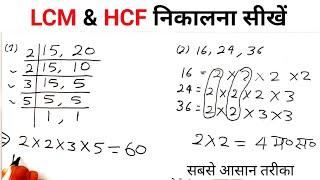 LCM & HCF निकालना सीखें
(1) 2 | 15, 20
2 | 15, 10
3 | 15, 5
5 | 5, 5
1, 1
= 2×2×3×5=60
(2) 16, 24, 36
16 = 2×2×2×2
24 = 2×2×2×3
36 = 2×2×3×3
2×2 = 4 म० स०
सबसे आसान तरीका